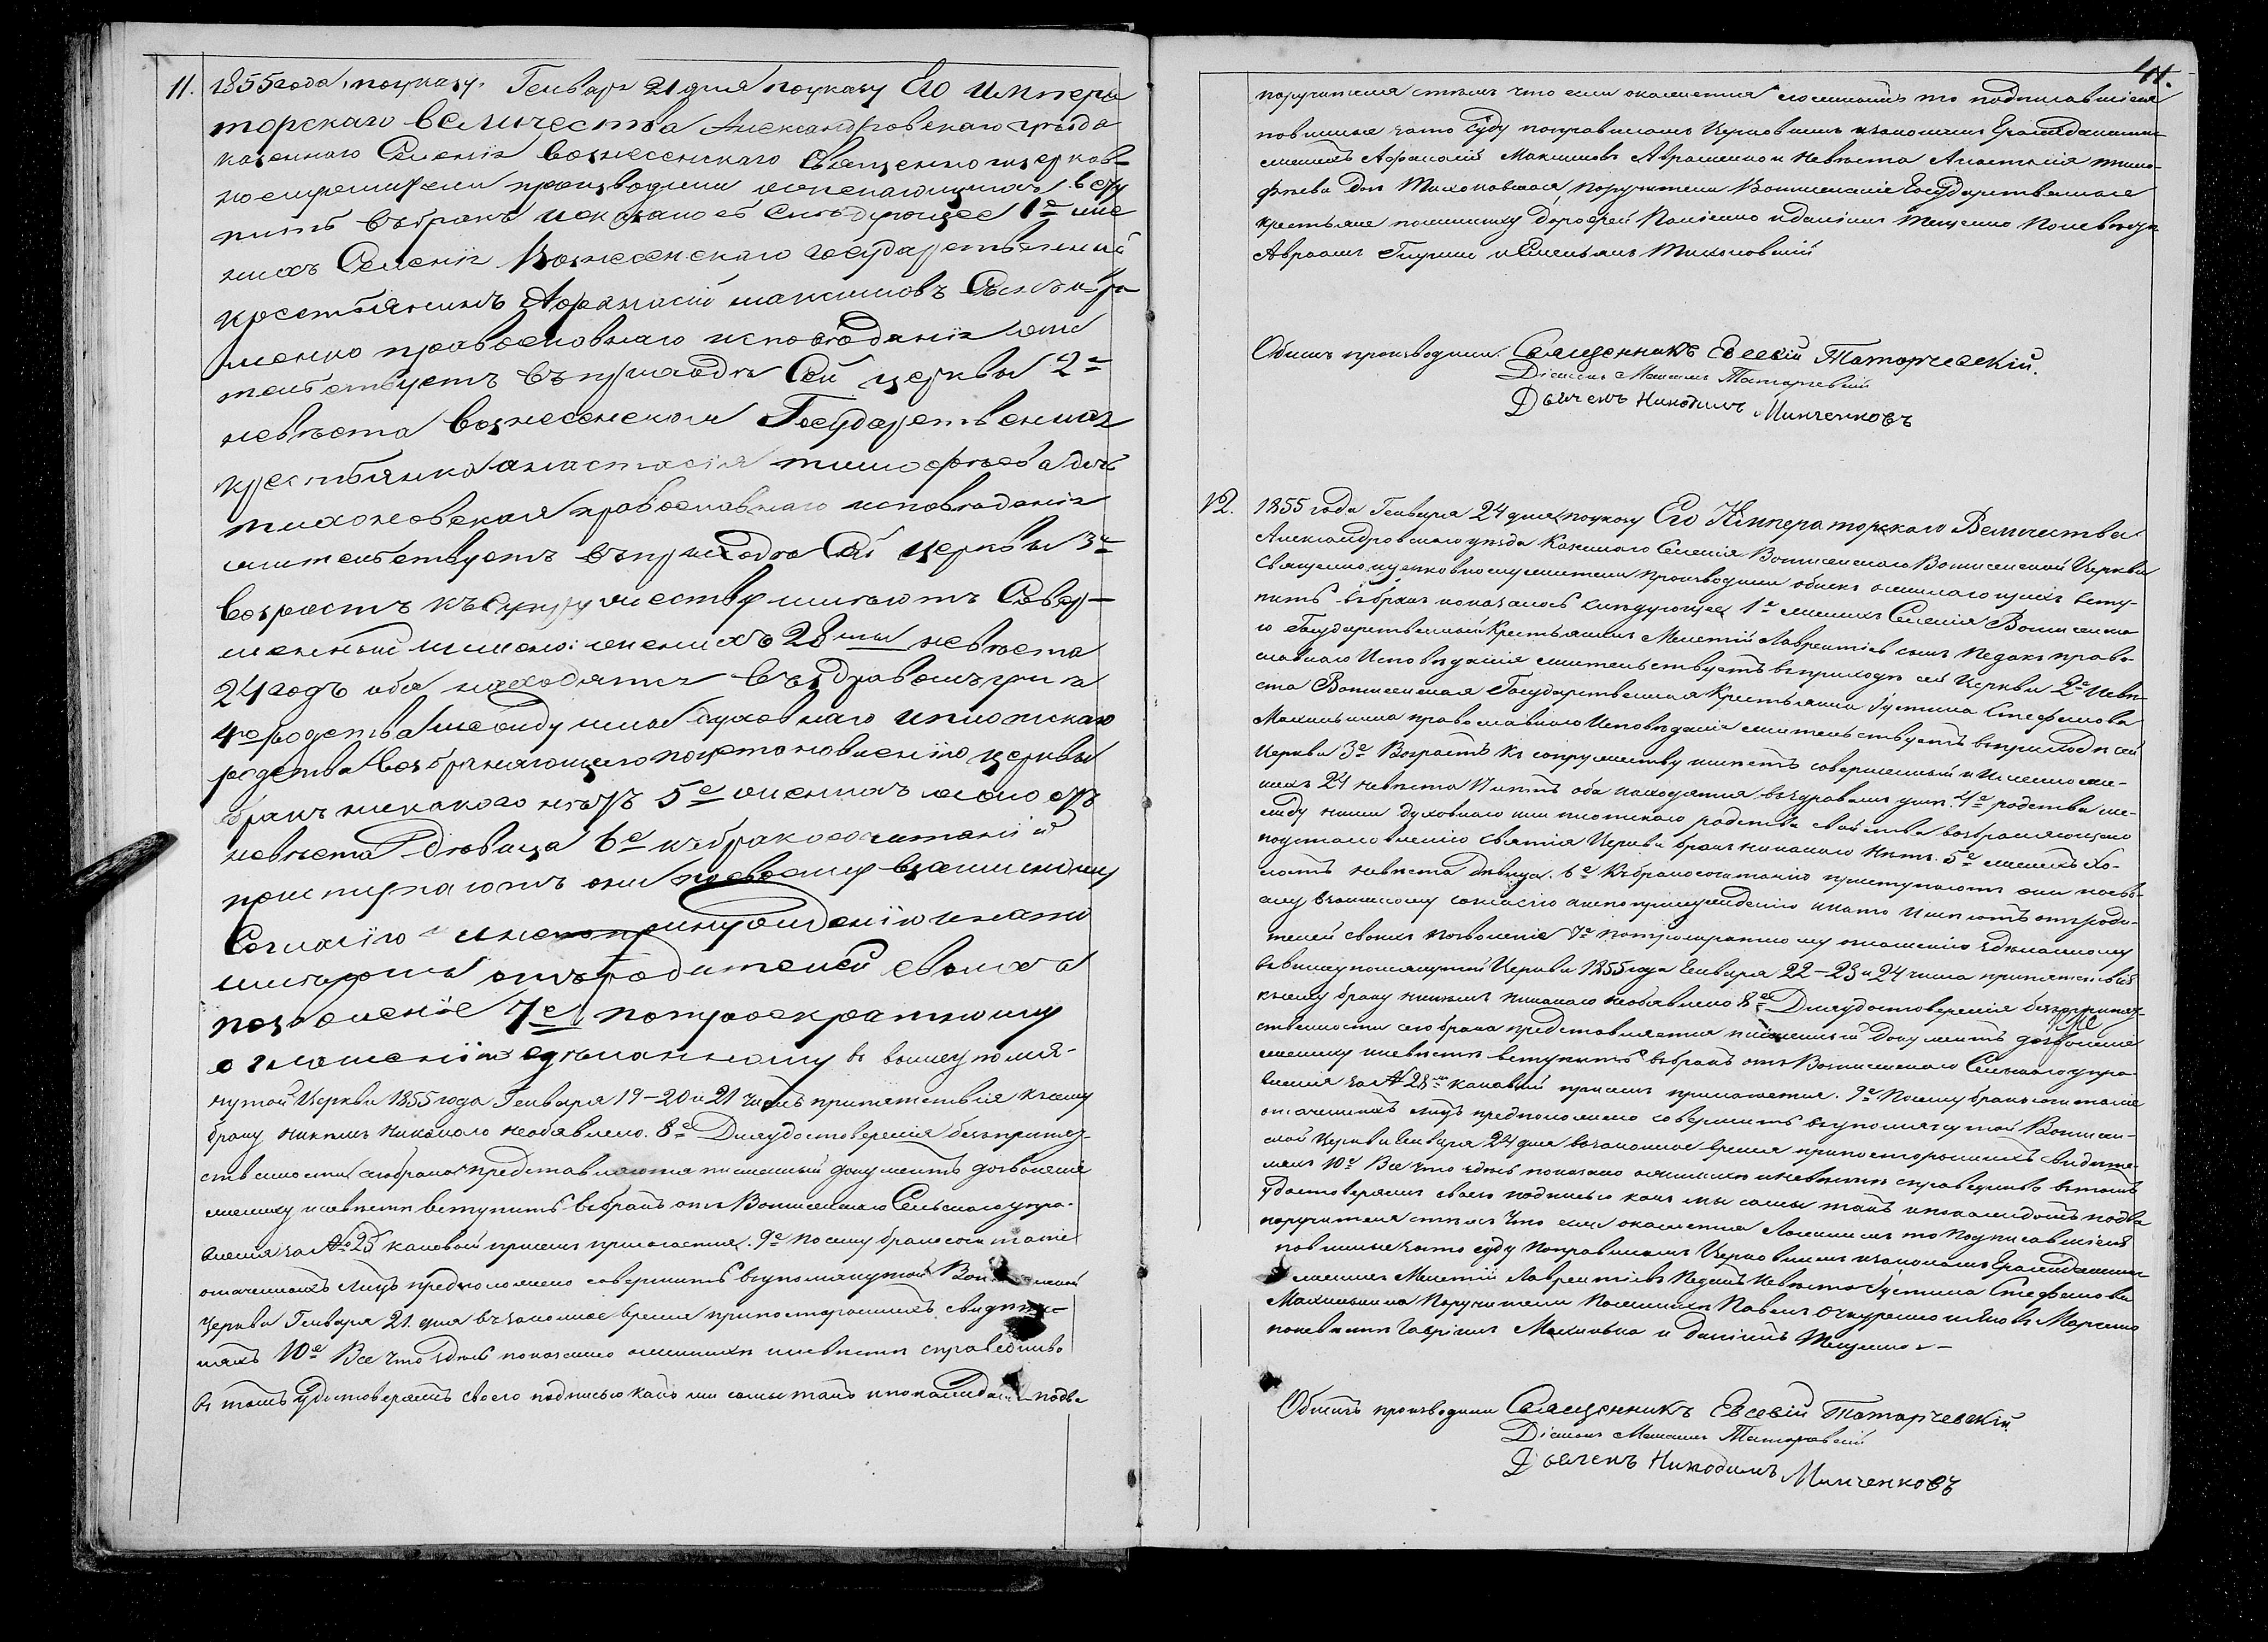 11. 1855 года, поуказу. Генваря 21 дня поуказу Его импера
торскаго величества Александровскаго уезда
казеннаго Селенія вознесенскаго Священно ицерков-
нослужители производили желающимъ всту
пить въбракъ и оказалось Следующее 1е же
нихъ Селенія Вознесенскаго государственный
крестьянинъ Афанасій максимовъ Сынъ авра
менко православнаго исповѣданія жи
тельствуетъ въприходѣ Сей церкви 2е
невѣста вознесенская Государственная
крестьянка анастасія тимофѣева дочь
тихоновская православнаго исповѣданія
жительствуетъ въприходѣ Сей церкви 3е
возрастъ къ Супружеству имѣютъ Совер-
шенный имянно: женихъ 28 невѣста
24 годъ оба находятся въздравомъ умѣ
4е родства между ими духовнаго иплотскаго
родства возбраняющаго поустановленію церкви
бракъ никакого нѣтъ 5е женихъ холостъ
невѣста дѣвица 6е къбракосочитанію
приступаютъ они посвоему взаимному
Согласію инепопринужденію инато
имѣютъ отъродителей своихъ
позволеніе 7е потроекратному
оглашенію зделанному въ вышеупомя-
нутой Церкви 1855 года Генваря 19-20 и 21 числъ припятствія ксему
браку никемъ никакого необявлено. 8е Дляудостоверенія безприпят-
ственности сегобрака представляется писменный документъ дозволеніе
жениху иневѣсте вступить вбракъ отъ Вознесенскаго Сельскаго упра-
вленія за № 25 каковой присемъ прилагается. 9е посему бракосочитаніе
означенныхъ лицъ предположено совершить вупомянутой Вознесенской
Церкви Генваря 21. дня въ законное время припостороннихъ свидете-
ляхъ 10е Все что здесь показано оженихе иневѣсте справедливо
в томъ удостоверяемъ своею подписью какъ ми самы такъ ипокаждомъ подве

41.
поручителя стемъ что если окажется ложнымъ то подписавшіеся
повинные зато суду поправиламъ Церковнымъ изаконамъ Гражданским
женихъ Афанасій Максимовъ Авраменко и невѣста Анастасія тимо-
феева дочь Тихоновская, поручители Вознесенскіе Государственные
крестьяне пожениху Дорофей Паліенко иданіилъ Тещенко поневѣсте
Авраамъ Глушко и Емельянъ Тихоновскій
Обискъ производили: Священникъ Евсевій Таторчевскій.
Діаконъ Максимъ Таторчевскій
Дьячекъ Никодимъ Минченковъ

12. 1855 года Генваря 24 дня поуказу Его Императорскаго Величества
Александровскаго уезда Казеннаго Селенія Вознесенскаго Вознесенской Церкви
Священно ицерковнослужители производили обискъ ожелающихъ всту-
пить вбракъ иоказалось следующее 1е женихъ Селенія Вознесенска
го Государственный Крестьянинъ Мелетій Лаврентіевъ сынъ Педакъ право-
славнаго Исповѣданія жительствуетъ въприходѣ сей Церкви 2е Невѣ-
ста Вознесенская Государственная Крестьянка Іустина Стефанова
Махинькина православнаго Исповѣданія жительствуетъ въприходѣ сей
Церкви 3е Возрастъ къ супружеству имѣетъ совершенный и Имянно же-
нихъ 24 невѣста 17 лѣтъ оба находятся въздравомъ умѣ. 4е родства ме-
жду ними духовнаго или плотскаго родства свойства возбраняющаго
поустановленію святыя Церкви бракъ никакого нѣтъ. 5е женихъ Хо-
лостъ невѣста Девица. 6е Къ бракосочитанію приступаютъ они посво-
ему взаимному согласію анепопринужденію инато Имѣютъ отъроди-
телей своихъ позволеніе 7е потроекратному оглашенію зделанному
ввышеупомянутой Церкви 1855 года Генваря 22-23 и 24 числа припятствій
ксему браку никемъ никакого необявлено 8е Дляудостоверенія безприпят-
ственности сего брака представляется писменный документъ дозволеніе
жениху иневѣсте вступить вбракъ отъ Вознесенскаго Сельскаго упра-
вленія за № 28 каковый присемъ прилагается. 9е Посему бракосочитаніе
означенныхъ лицъ предположено совершить вупомянутой Вознесен-
ской Церкви Генваря 24 дня взаконное время припостороннихъ свидете-
ляхъ 10е Все что здесь показано оженихе иневѣсте справедливо втомъ
удостоверяемъ своею подписью какъ мы самы такъ ипокаждомъ подве
поручителя стемъ что если окажется Ложнымъ то Подписавшіеся
повинные зато суду Поправиламъ Церковнымъ изаконамъ Гражданским
женихъ Мелетій Лаврентіевъ Педакъ Невѣста Іустина Стефанова
Махинькина Поручители Пожениху Павелъ Очкуренко и Яковъ Марченко
поневѣсте Гавріилъ Махинька и Даніилъ Тещенко -
Обискъ производили Священникъ Евсевій Таторчевскій
Діаконъ Максимъ Таторчевскій
Дьячекъ Никодимъ Минченковъ